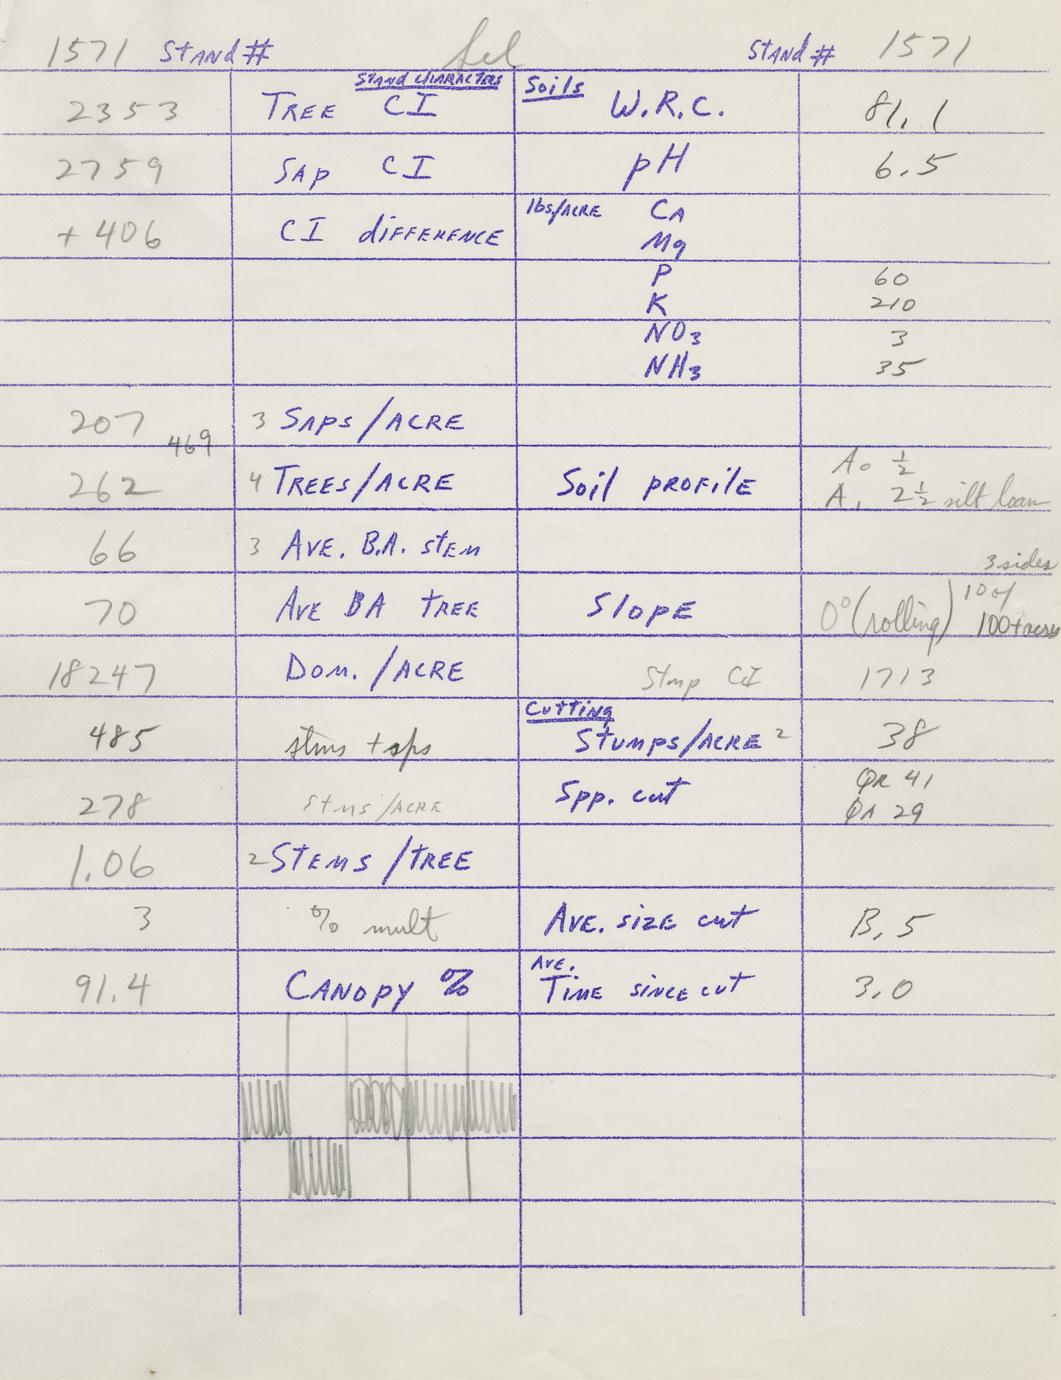 1571 Stand # fcl Stand # 1571
Stand Characters Soils
2353 Tree CI W.R.C. 81.1
2759 Sap CI pH 6.5
lbs/Acre Ca
+406 CI difference Mg
P 60
K 210
NO3 3
NH3 35
207 3 Saps/Acre
469 A0 ½
262 4 Trees/Acre Soil profile A1 2½ silt loam
66 3 Ave. B.A. stem
3 sides
70 Ave BA tree Slope 0° (rolling) 10 of 100+ acres
18247 Dom./Acre Stmp CI 1713
Cutting
485 stms + sps Stumps/Acre 2 38
278 Stms/Acre Spp. cut QR 41
QA 29
1.06 2 Stems/tree
3 % mult Ave. size cut B, 5
Ave.
91.4 Canopy % Time since cut 3.0